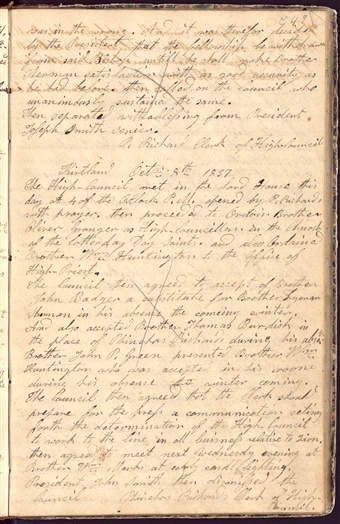 243
was in the wrong. And it was therefor decided
by the President that the fellowship be withdrawn
from said Bishop untill he shall make Brother
Herman satisfaction with as good security as
he had before. then called on the council who
unanimously sustained the same.
then separated with a blessing from President
Joseph Smith Senior.
P. Richards Clerk of High Council
Kirtland Oct. 8th 1837.
The High Council met in the Lord House this
day at 4 of the Oclock P.M. opened by P. Richards
with prayer, then proceeded to Ordain Brother
Oliver Granger as High councillor in the Church
of the Latterday Day Saints. and also Ordained
Brother Wm Huntington to the office of
High Priest.
The Council then agreed to accept of Brother
John Badger a substitute for Brother Lyman
Sherman in his absence the comeing winter.
And also accepted Brother Thomas Burdick in
the place of Phinehas Richards during his absence
Brother John P. Green presented Brother Wm
Huntington who was accepted in his roome
during his absence the winter coming.
The Council then agreed that the Clerk shall
prepare for the press a communication seting
forth the determination of the High Council
to work to the line in all buisness relative to Zion,
then agreed to meet next Wednesday evening at
Brother Wm Marks at early candl lighting.
President John Smith then dismissed the
council Phinehas Richards Clerk of High
Council.